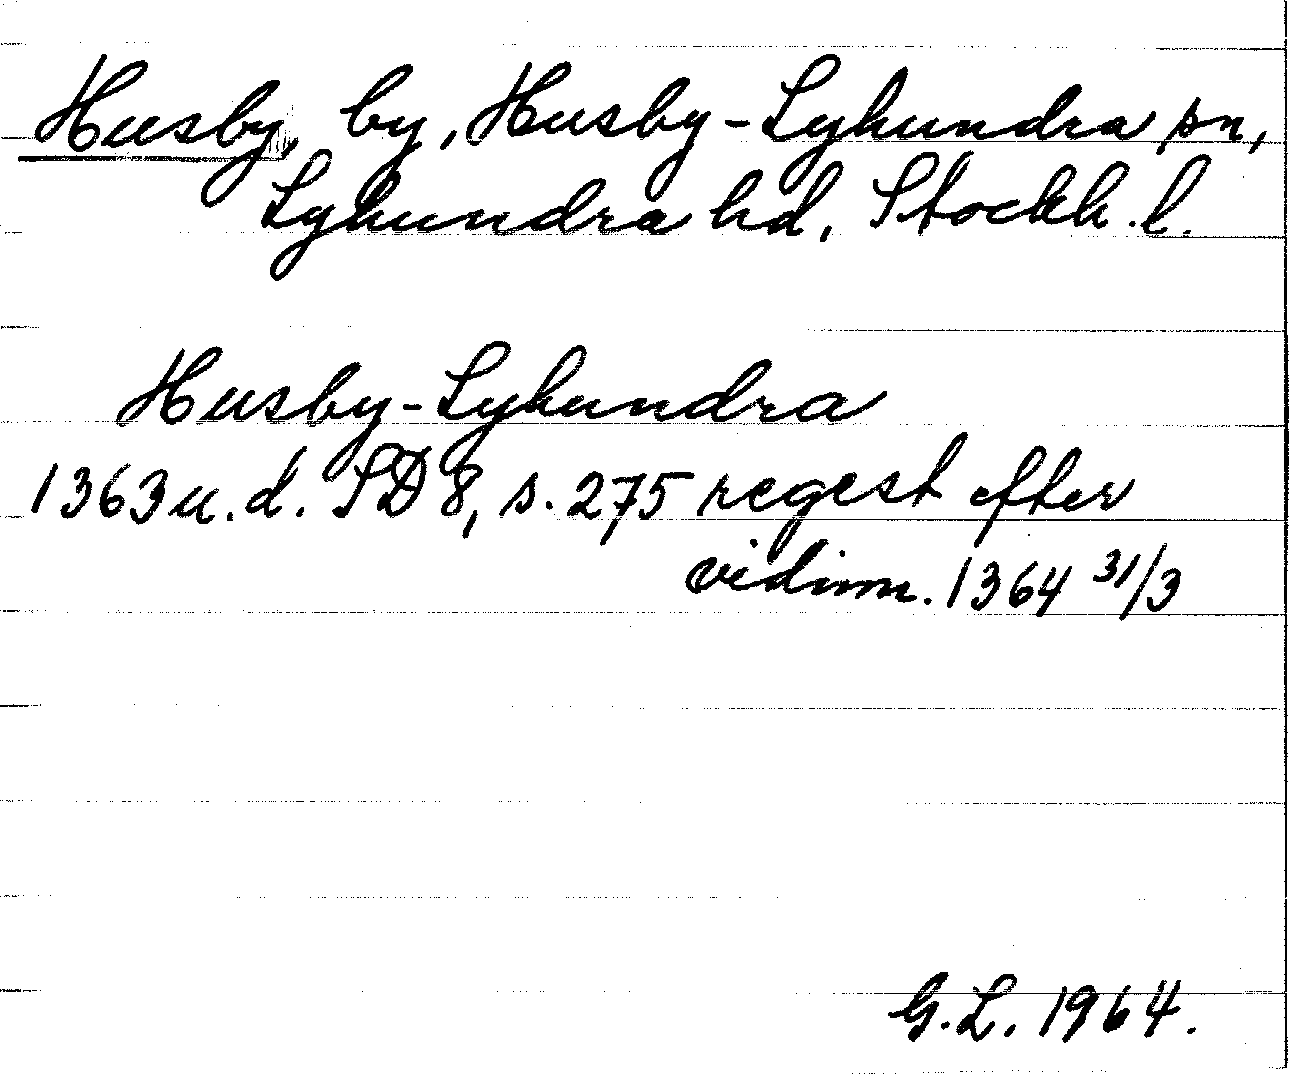 Husby, by, Husby-Lyhundra sn,
Lyhundra hd, Stockh. l.
Husby-Lyhundra
1363 u.d. SD 8, s. 275 regest efter
vidim. 1364 31/3
G.L. 1964.